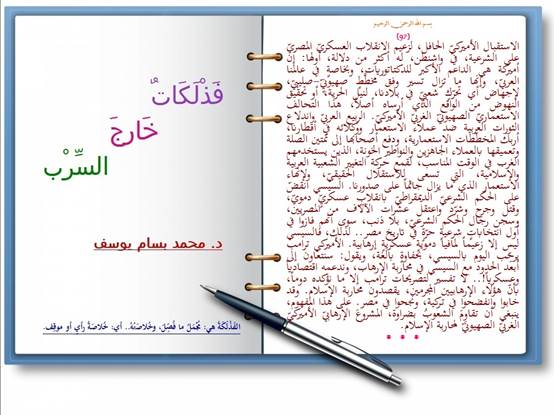 بسم الله الرحمن الرحيم
(97)
الاستقبال الأميركيّ الحافل، لزعيم الانقلاب العسكريّ المصريّ
على الشرعية، في واشنطن، له أكثر من دلالة، أولها: إنّ
أميركة هي الداعم الأكبر للدكتاتوريات، وبخاصةٍ في عالمنا
العربيّ، وإنها ما تزال تسير وفق مخطّطٍ صهيونيٍّ صليبيّ،
لإجهاض أي تحرّكٍ شعبيٍّ في بلادنا، لنيل الحرية، أو تحقيق
النهوض من الواقع الذي أرساه أصلاً، هذا التحالف
الاستعماريّ الصهيونيّ الغربيّ الأميركيّ. الربيع العربيّ واندلاع
الثورات العربية ضد عملاء الاستعمار ووكلائه في أقطارنا،
أربك المخططات الاستعمارية، ودفع أصحابها إلى تمتين الصلة
وتعميقها بالعملاء الجاهزين والنواطير الخونة، الذين يستخدمهم
الغرب في الوقت المناسب، لقمع حركة التغيير الشعبية العربية
والإسلامية، التي تسعى للاستقلال الحقيقيّ، ولإنهاء
الاستعمار الذي ما يزال جاثماً على صدورنا. السيسي انقضّ
على الحكم الشرعيّ الديمقراطيّ بانقلابٍ عسكريٍّ دمويّ،
وقتل وجرح وشرّد واعتقل عشرات الآلاف من المصريين،
وسجن رجال الحكم الشرعيّ، بلا ذنب، سوى أنهم فازوا في
أول انتخاباتٍ شرعيةٍ حرّةٍ في تاريخ مصر.. لذلك، فالسيسي
ليس إلا زعيماً لمافيا دمويةٍ عسكريةٍ إرهابية. الأميركي ترامب
يرحّب اليوم بالسيسي، بحفاوةٍ بالغة، ويقول: سنتعاون إلى
أبعد الحدود مع السيسي في محاربة الإرهاب، وندعمه اقتصادياً
وعسكرياً!.. لا تفسير لتصريحات ترامب إلا ما نؤكده دوماً،
بأنّ هؤلاء الإرهابيين المجرمين، يقصدون محاربة الإسلام. وقد
خابوا وانفضحوا في تركية، ونجحوا في مصر. على هذا المفهوم،
ينبغي أن تقاوم الشعوب بضراوة، المشروع الإرهابيّ الأميركيّ
الغربيّ الصهيونيّ لمحاربة الإسلام.
* * *
فَذْلَكَاتٌ
خَارجَ
السِّرْب
د. محمد بسام يوسف
الفَذْلَكَةُ هي: مُجْمَلُ ما فُصِّلَ، وخُلاصَتُهُ.. أي: خُلاصَةُ رأيٍ أو موقِف.